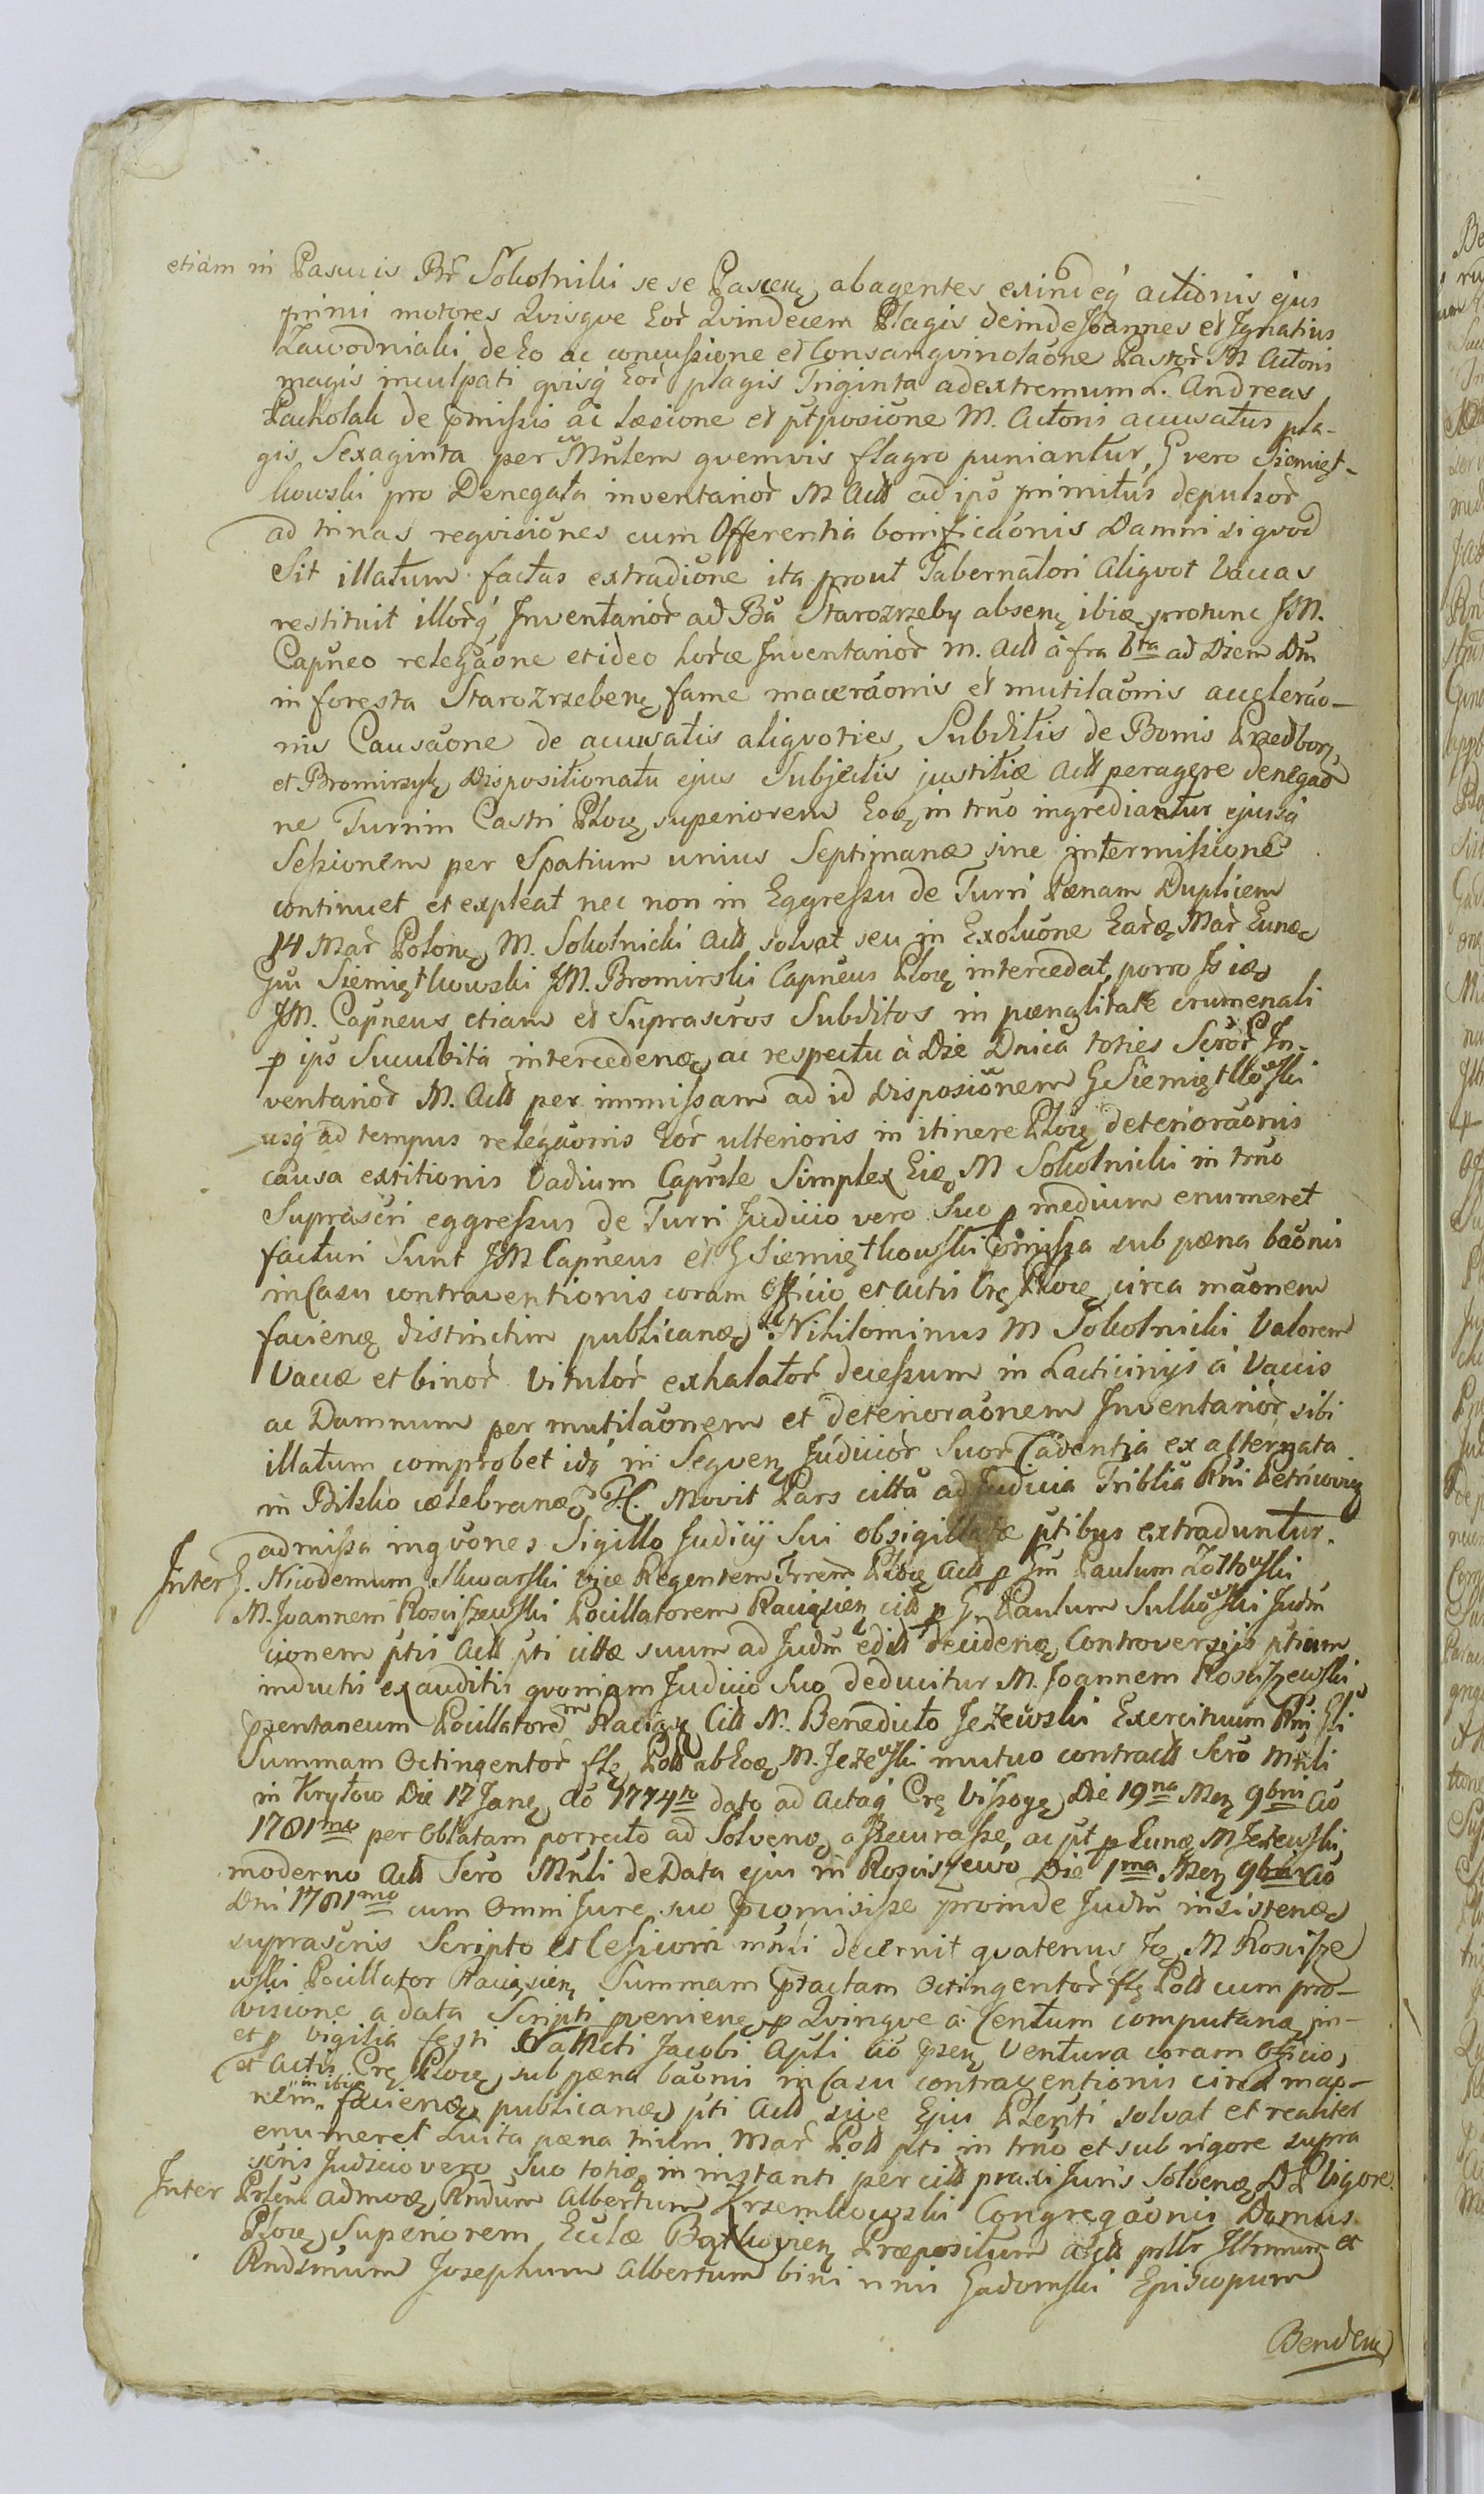 etiam in Pascuis Br̃ Sokolniki se se Pascenȩ abagentes exindeq̃ actionis ejus
primi motores Qvisqve Eor̃ Qvindecem Plagis deinde Joannes et Ignatius
Zawodniaki de Eo ac concussione et Consangvinolãone Pastor̃ M Actoris
magis inculpati qvisq̃ Eor̃ plagis Triginta adextremum L. Andreas
Pacholak de p̃missis ac læsione et p̃tposiõne M. Actoris accusatus pla-
gis Sexaginta per Mnlem qvemvis flagro puniantur, G vero Siemięt-
kowski pro Denegata inventarior̃ M Actt ad ips̃ primitus depulsor̃
ad trinas reqvisiõnes cum Offerentia bonificaõnis Damni siqvod
Sit illatum factas extradiõne ita prout Tabernatori Aliqvot Vaccas
restituit illorq̃ Inventarior̃ ad Bã Starozrzeby absenȩ ibiæ protunc JM.
Capñeo relegaõne et ideo horæ Inventarior̃ m. Actt à fra 6ta ad Diem Dm̃
in foresta Starozrzebenȩ fame maceraõnis et mutilaõnis acceleraõ-
nis Causaõne de accusatis aliqvoties Subditis de Bonis Przedborȩ
et Bromirzykȩ Dispositionatu ejus Subjectis justitiæ Actt peragere denegaõ
ne Turrim Castri Plocȩ superiorem Eoȩ in trño ingrediantur ejusq̃
Sessionem per Spatium unius Septimanæ sine intermissione
continuet et expleat nec non in Eggressu de Turri Pœnam Duplicem
14 Mar̃ Polonȩ M. Sokolnicki Actt solvat seu in Exoluõne Earȩ Mar̃ Eunȩ
Gm̃ Siemiętkowski JM. Bromirski Capñeus Plocȩ intercedat porro Is iȩ
JM. Capñeus etiam et Suprascr̃os Subditos in pœnalitate crumenali
p ips̃ Succubita intercedenȩ ac respectu à Die Dnica toties Scr̃or̃ In-
ventarior̃ M. Actt per immissam ad id Disposiõnem G Siemiętkowski
usq̃ ad tempus relegaõnis Eor̃ ulterioris in itinere Plocȩ deterioraõnis
causa extitionis Vadium Capr̃le Simplex Eiȩ M Sokolnicki in trño
Suprascr̃i eggressus de Turri Judicio vero Suo p medium enumeret
facturi Sunt JM Capñeus et G Siemiętkowski p̃missa sub pœna bãõnis
in Casu contraventionis coram Officio et Actis Crȩ Plocȩ circa mãõnem
facienȩ distinctim publicanȩ. Nihilominus M Sokolnicki Valorem
Vaccæ et binor̃ Vitulor̃ exhalator̃ decessum in Lacticinijs à Vaccis
ac Damnum per mutilaõnem et deterioraõnem Inventarior̃ sibi
illatum comprobet idq̃ in Seqvenȩ Judicior̃ Suor̃ Cadentia ex alternata
in Bilsko celebranȩ H. Movit Pars citta ad Judicia Triblia Rni Petricovien
admissa inqvones Sigillo Judicij Sui obsigillatæ p̃tibus extraduntur.
Inter G. Nicodemum Skwarski Vice Regentem Trrem Plocȩ Actt p Gm̃ Paulum Żółtowski
M. Joannem Rosciszewski Pocillatorem Raciążien citt p Gm Paulum Sulkowski Judm̃
cionem p̃tis Actt p̃ti cittæ suum ad Judm̃ edit decidenȩ Controversijs p̃tium
inductis exauditis qvoniam Judicio Suo deducitur M. Joannem Rosciszewski
p̃sentaneum Pocillatorem Raciążȩ Citt M. Benedicto Jeżewski Exercituum Rni Gli
Summam Octingentor̃ flȩ Poll ab Eoȩ M. Jeżewski mutuo contractt Scr̃o Mnli
in Kryłow Die 17 Janȩ Aõ 1774to dato ad Actaq̃ Crȩ Vissogȩ Die 19na Mȩ 9bris Aõ
1781mo per Oblatam porrecto ad Solvenȩ assecurasse, ac p̃t p Eunȩ M Jeżewski
moderno Actt Scr̃o Mnli de Data ejus in Rosciszewo Die 1ma Mensȩ 9bris Aõ
Dni 1781mo cum Omni Jure suo p̃romisisse proinde Judm̃ insistenȩ
suprascr̃is Scripto et Cessioni mnli decernit qvatenus Iȩ M Roscisze
wski Pocillator Raciążien Summam p̃tactam Octingentor̃ flȩ Poll cum pro-
visione a data Scripti pvenienȩ p Qvinqve à Centum computanȩ in-
et p Vigilia festi Sancti Jacobi Apli Aõ p̃senȩ Ventura coram Officio,
et Actis Crȩ Plocȩ sub pœna bãõnis in Casu contraventionis circa mãõ-
nem in ibiȩ facienȩ publicanȩ p̃ti Actt sive Ejus Plenti solvat et realiter
enumeret Luita pœna trium Mar̃ Poll p̃ti in trño et sub rigore supra
scr̃is Judicio vero Suo totiȩ in instanti per citt praxi Juris Solvenȩ D P Vigore.
Inter Prlem Admovȩ Rndum Albertum Krzemkowski Congregaõnis Domus
Plocȩ Superiorem Eclæ Bątkovienȩ Præpositum Actt pltr Illrmum et
Rndsmum Josephum Albertum bini nnis Gadomski Episcopum
Bendenȩ